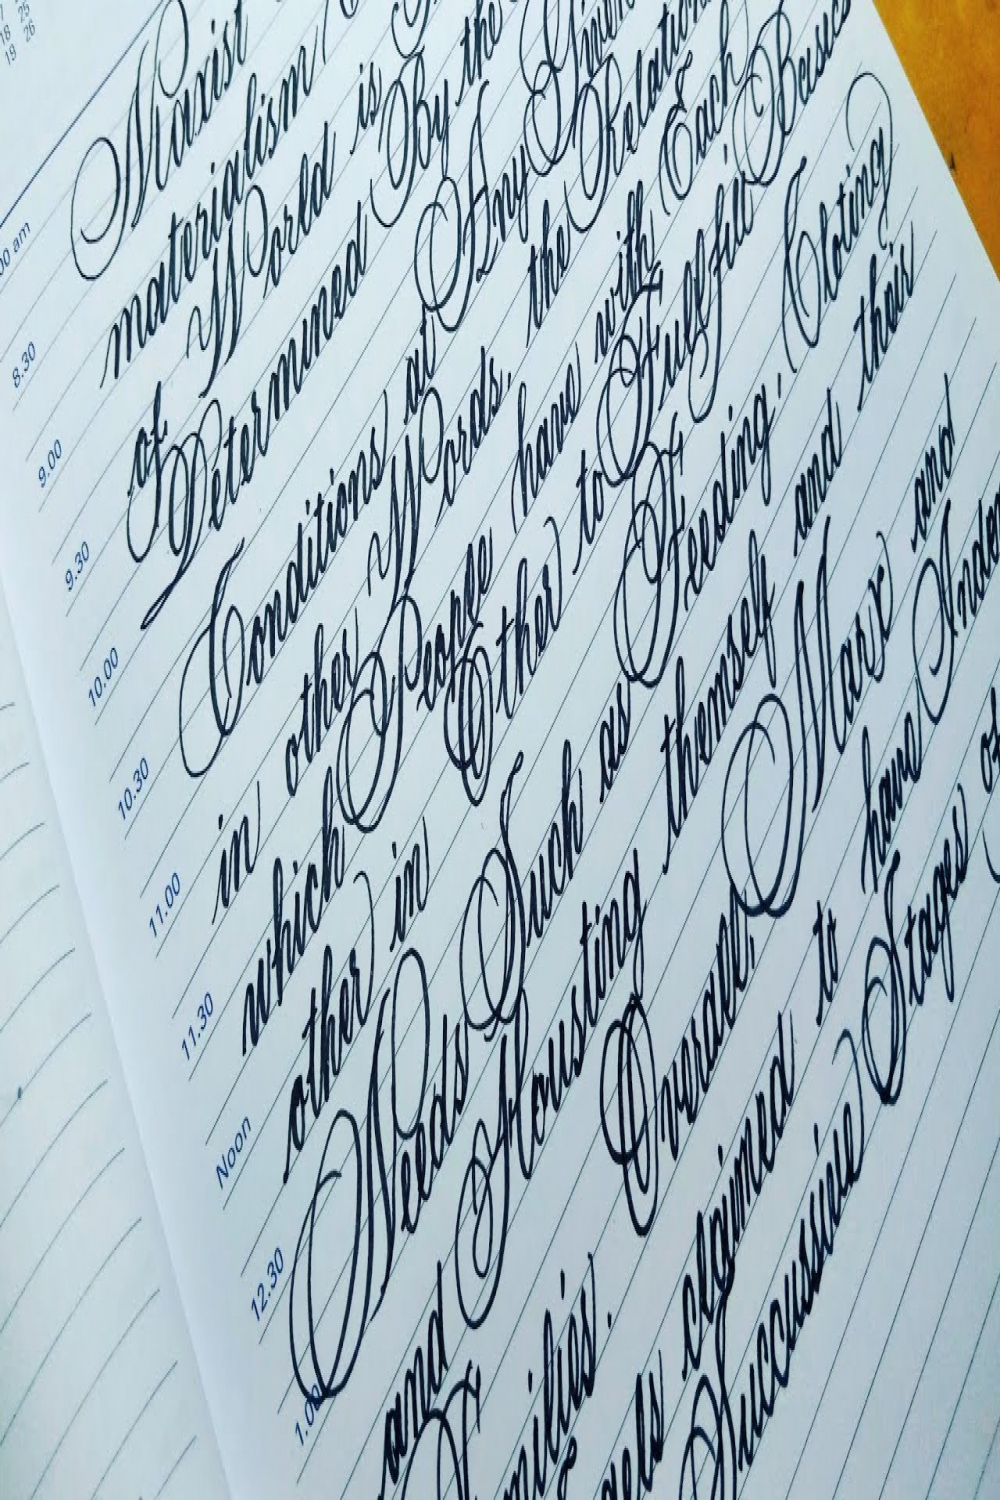 25
18 26
19
Marxist
materialism
of World is By the
Determined Any Given
Conditions at the Relation
in other Words, with Each
which People have to Fulfill Basic
other in Other Feeding, Cloting
Needs Such as themself and their
and Housting Marx and
Families. Overall, to have Inden
gels claimed Stages of
Successive
00 am
8.30
9.00
9.30
10.00
10.30
11.00
11.30
Noon
12.30
1.00